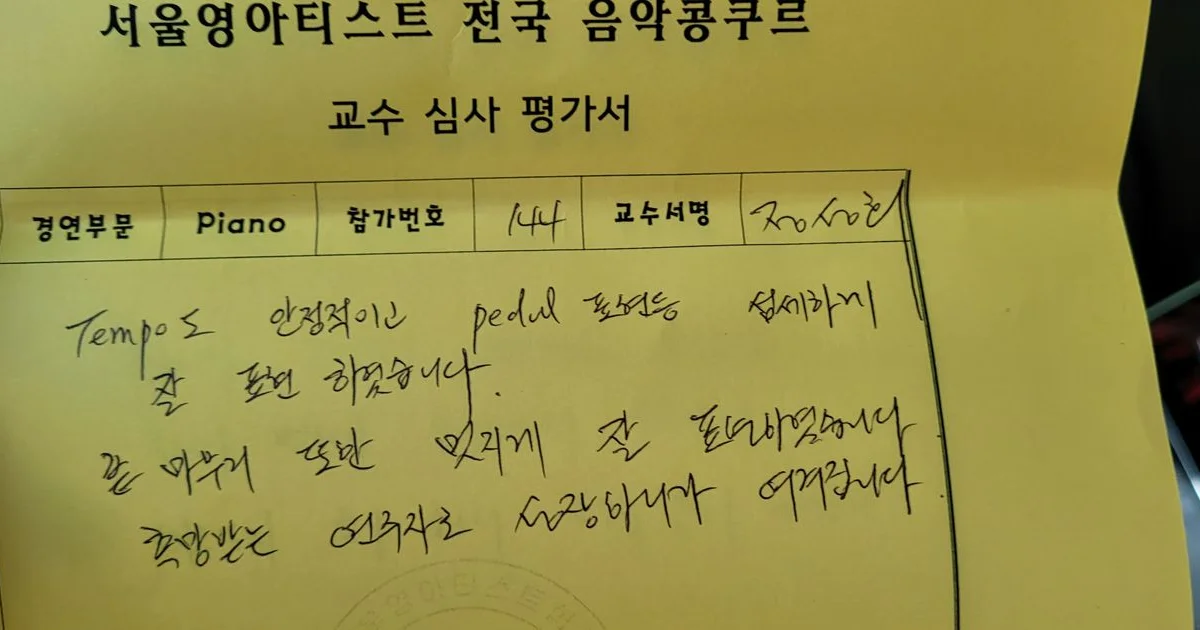 서울영아티스트 전국 음악콩쿠르
교수 심사 평가서
경연부문 Piano 참가번호 144 교수서명 정상희
Tempo도 안정적이고 pedal 표현등 섬세하게
잘 표현 하였습니다.
끝 마무리 또한 멋지게 잘 표현하였습니다
촉망받는 연주자로 성장하리라 여겨집니다.
서울영아티스트